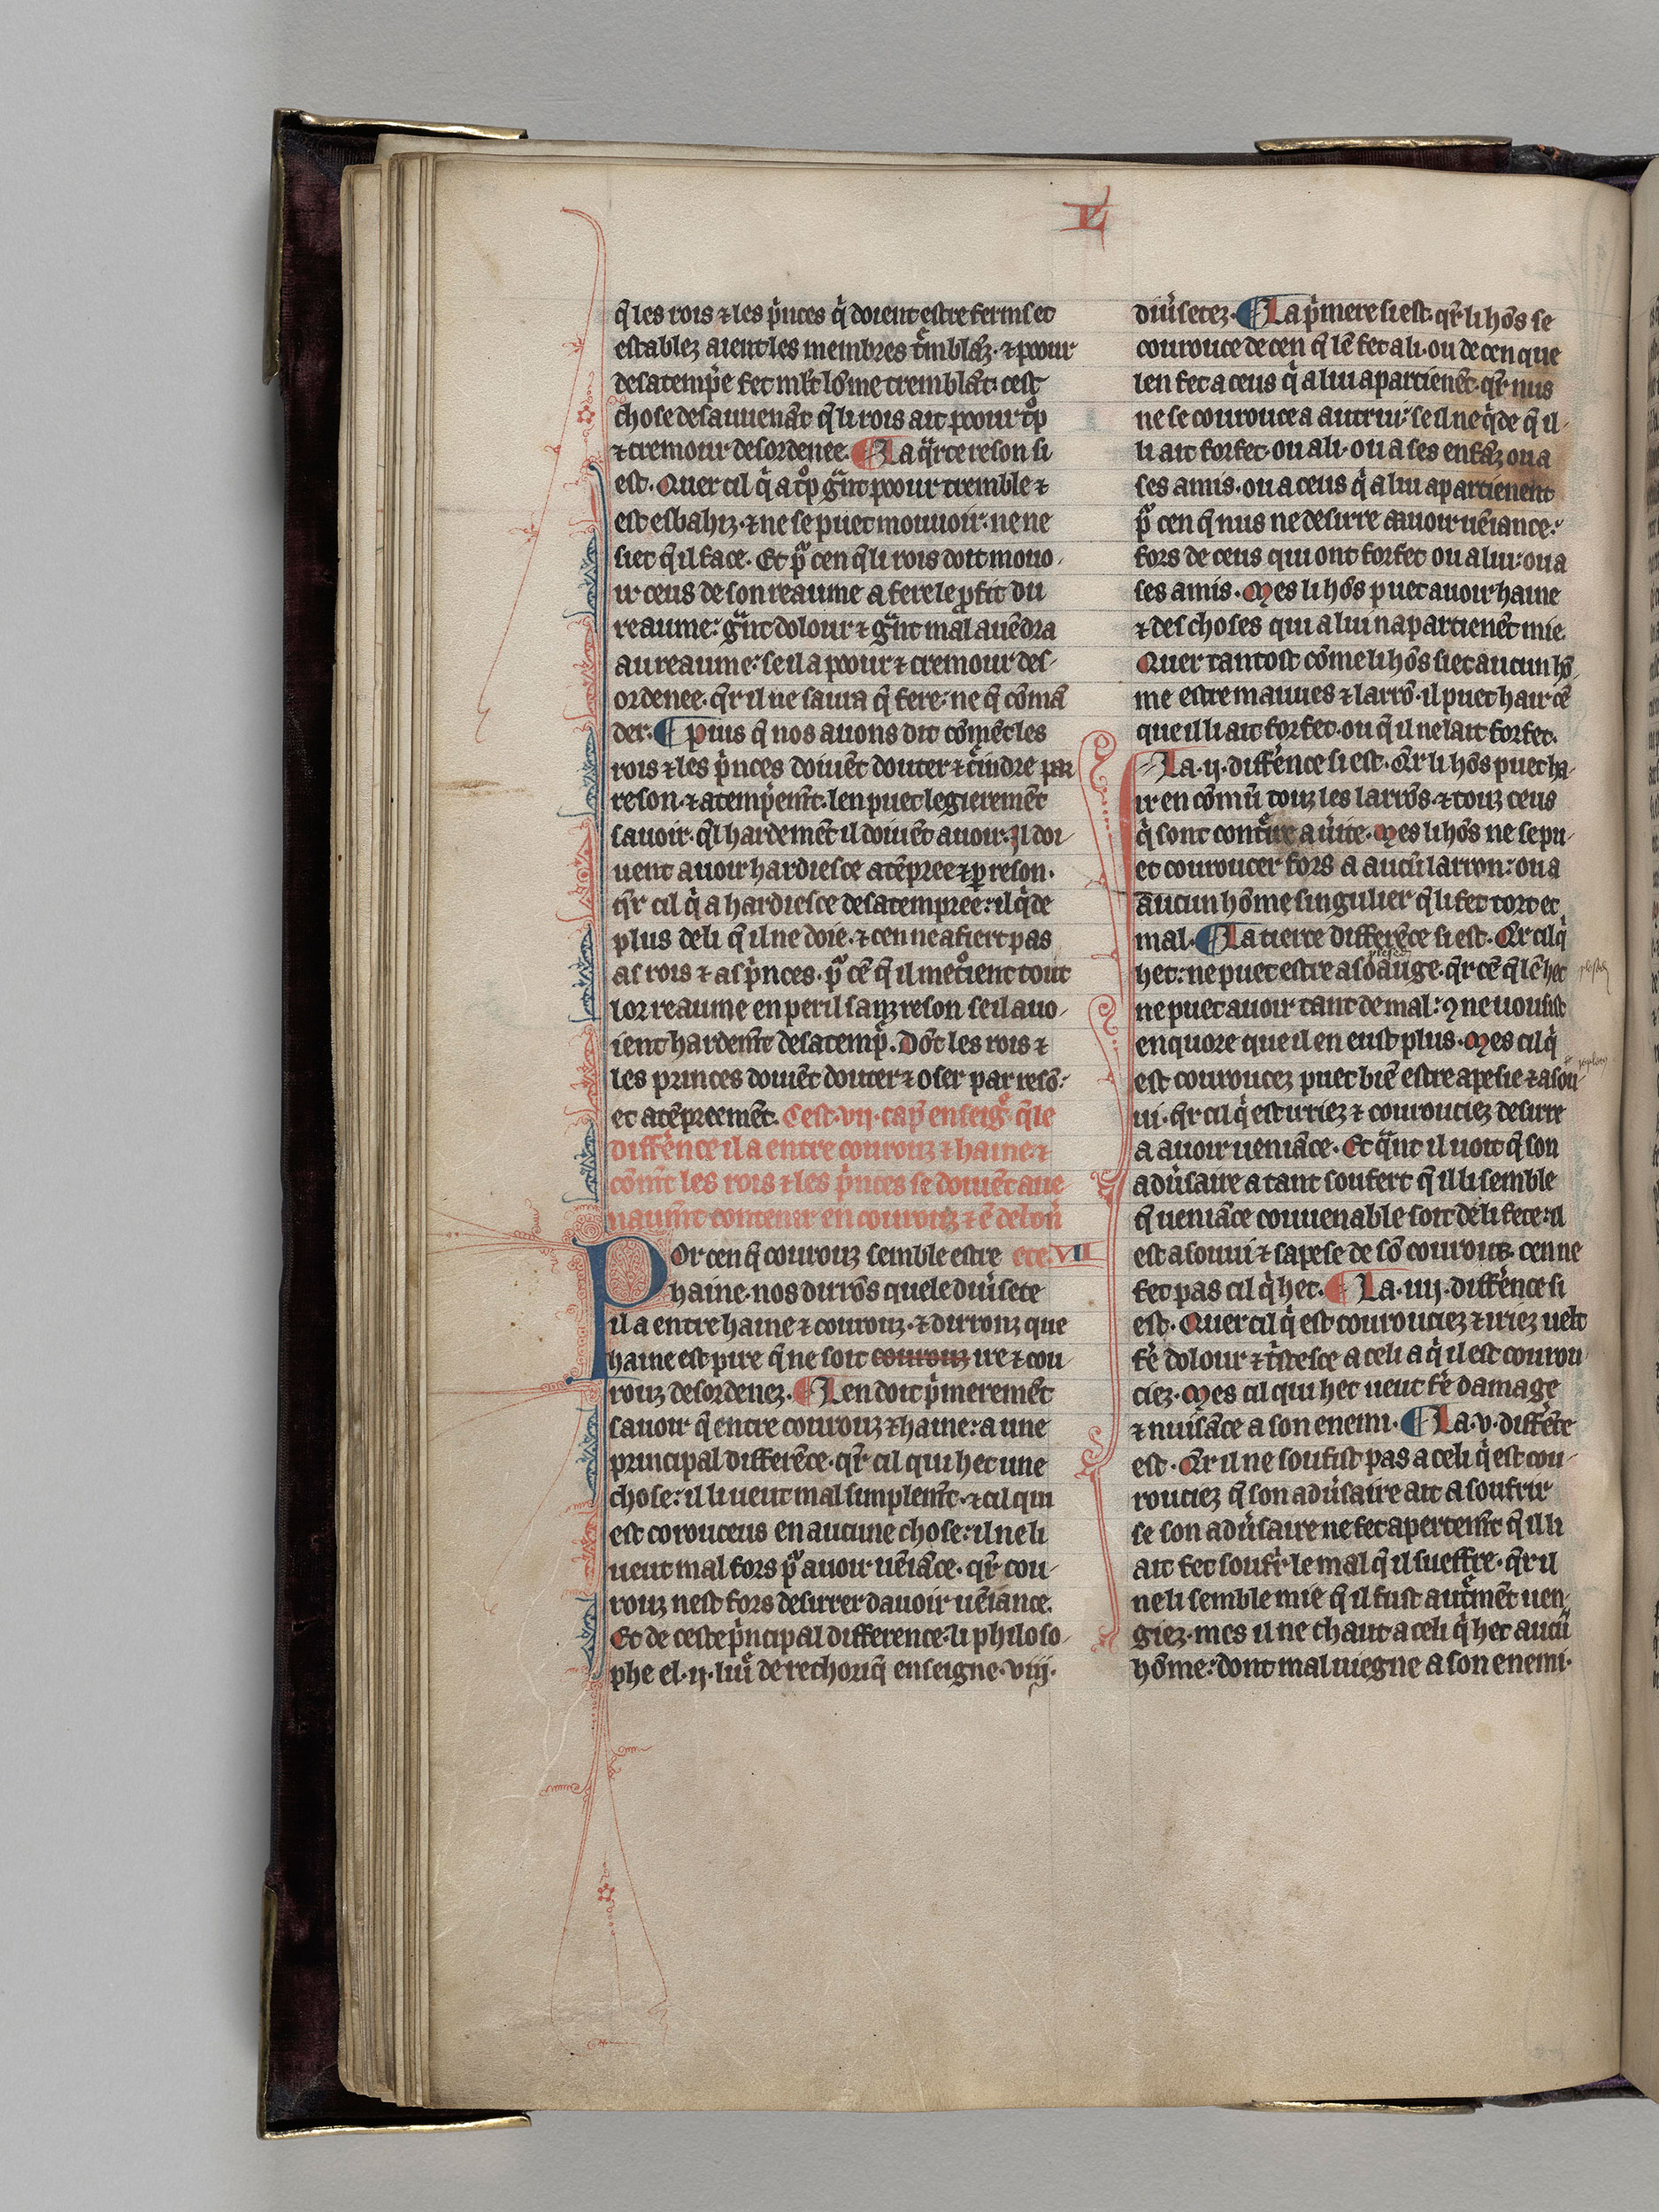 L
q̄ les rois ⁊ les p̍nces q̍ doient estre ferms et
establez aient les membres t̍mblãz. ⁊ poour
desatemp̍e fet ml̃t lõme tremblãt. cest
chose desauuenãt q̄ li rois ait poour t°p
⁊ cremour desordenee. ¶ La qᵃrte reson si
est. Quer cil q̍ a t°p gᵃnt poour tremble ⁊
est esbahiz. ⁊ ne se puet mouuoir: ne ne
siet q̄ il face. Et pᵒ cen q̄ li rois doit mouo-
ir ceus de son reaume a fere le ꝓfit du
reaume: gᵃnt dolour ⁊ gᵃnt mal auẽdra
au reaume: se il a poour ⁊ cremour des-
ordenee. q̄r il ne saura q̄ fere: ne q̄ cõmã
der. ¶ Puis q̄ nos auons dit cõmẽt les
rois ⁊ les p̍nces doiuẽt douter ⁊ c̍indre par
reson. ⁊ atemp̍emẽt. len puet legieremẽt
sauoir. q̄l hardemẽt il doiuẽt auoir. Il doi-
uent auoir hardiesce atẽpree ⁊ ꝑ reson.
q̄r cil q̍ a hardiesce desatempree: il q̍de
plus de li q̄ il ne doie. ⁊ cen ne afiert pas
as rois ⁊ as p̍nces. pᵒ cẽ q̄ il met°ient tout
lor reaume en peril sanz reson se il auo-
ient hardemt̃ desatemp̍. Dõt les rois ⁊
les princes doiuẽt douter ⁊ oser par resõ:
et atẽpreemẽt. Cest .vij. cap̃ enseig̃ q̄le
diff̍ence il a entre courouz ⁊ haine: ⁊
cõmt̃ les rois ⁊ les p̍nces se doiuẽt aue
naumt̃ contenir en courouz ⁊ ẽ debon̍
Por cen q̄ courouz semble estre ete. VII
haine. nos dirrõs quele diu̍sete
il a entre haine ⁊ courouz. ⁊ dirronz que
haine est pire q̄ ne soit courouz ire ⁊ cou
rouz desordenez. ¶ Len doit p̍meremẽt
sauoir q̄ entre courouz ⁊ haine: a une
principal differẽce. q̄r cil qui het une
chose: il li ueut mal simplemt̃. ⁊ cil qui
est corouceus en aucune chose: il ne li
ueut mal fors pᵒ auoir uẽiãce. q̄r cou-
rouz nest fors desirrer dauoir uẽiance.
Et de ceste p̍ncipal difference. li philoso-
phe el .ij. liu̍e de rethoriq̄ enseigne .viij.
diu̍setez. ¶ La p̍mere si est. q̄r li hõs se
courouce de cen q̄ lẽ fet a li. ou de cen que
len fet a ceus q̍ a lui apartienẽt. q̄r nus
ne se courouce a autrui: se il ne q̍de q̄ il-
li ait forfet. ou a li. ou a ses enfãz ou a
ses amis. ou a ceus q̍ a lui apartienent
pᵒ cen q̄ nus ne desirre auoir uẽiance:
fors de ceus qui ont forfet ou a lui: ou a
ses amis. Mes li hõs puet auoir haine
⁊ des choses qui a lui napartienẽt mie.
Quer tantost cõme li hõs siet aucun hõ-
me estre mauues ⁊ larrõ. il puet hair cẽ
que il li ait forfet. ou q̄ il ne lait forfet.
La .ij. diff̍ence si est. Qr̄ li hõs puet ha-
ir en cõmũ touz les larrõs. ⁊ touz ceus
q̍ sont contᵃire a u̍ite. Mes li hõs ne se pu-
et couroucer fors a aucũ larron: ou a
aucun hõme singulier q̍ li fet tort et
mal. ¶ La tierce differẽce si est. Qr̄ cil q̍
het: ne puet estre asoauge. q̄r cẽ q̄ lẽ het
ne puet auoir tant de mal: ꝯ ne uousist
enquore que il en eust plus. Mes cil q̍
est couroucez puet biẽ estre apesie ⁊ asou-
ui. q̄r cil q̍ est iriez ⁊ courouciez desirre
a auoir ueniãce. Et qᵃnt il uoit q̄ son
adu̍saire a tant soufert q̄ il li semble
q̄ ueniãce couuenable soit de li fete: il
est asouui ⁊ sapese de sõ courouz. cen ne
fet pas cil q̍ het. ¶ La .iiij. diff̍ence si
est. Quer cil q̍ est courouciez ⁊ iriez uelt
fẽ dolour ⁊ t̍stesce a celi a q̍ il est courou
ciez. Mes cil qui het ueut fẽ damage
⁊ nuisãce a son enemi. ¶ La .v. diff̍ẽce
est. Qr̄ il ne soufist pas a celi q̍ est cou-
rouciez q̄ son adu̍saire ait a soufrir
se son adu̍saire ne fet apertemt̃ q̄ il li
ait fet soufr̍ le mal q̄ il sueffre. q̄r il
ne li semble mie q̄ il fust autᵉmẽt uen-
giez. mes il ne chaut a celi q̍ het aucũ
hõme: dont mal uiegne a son enemi.